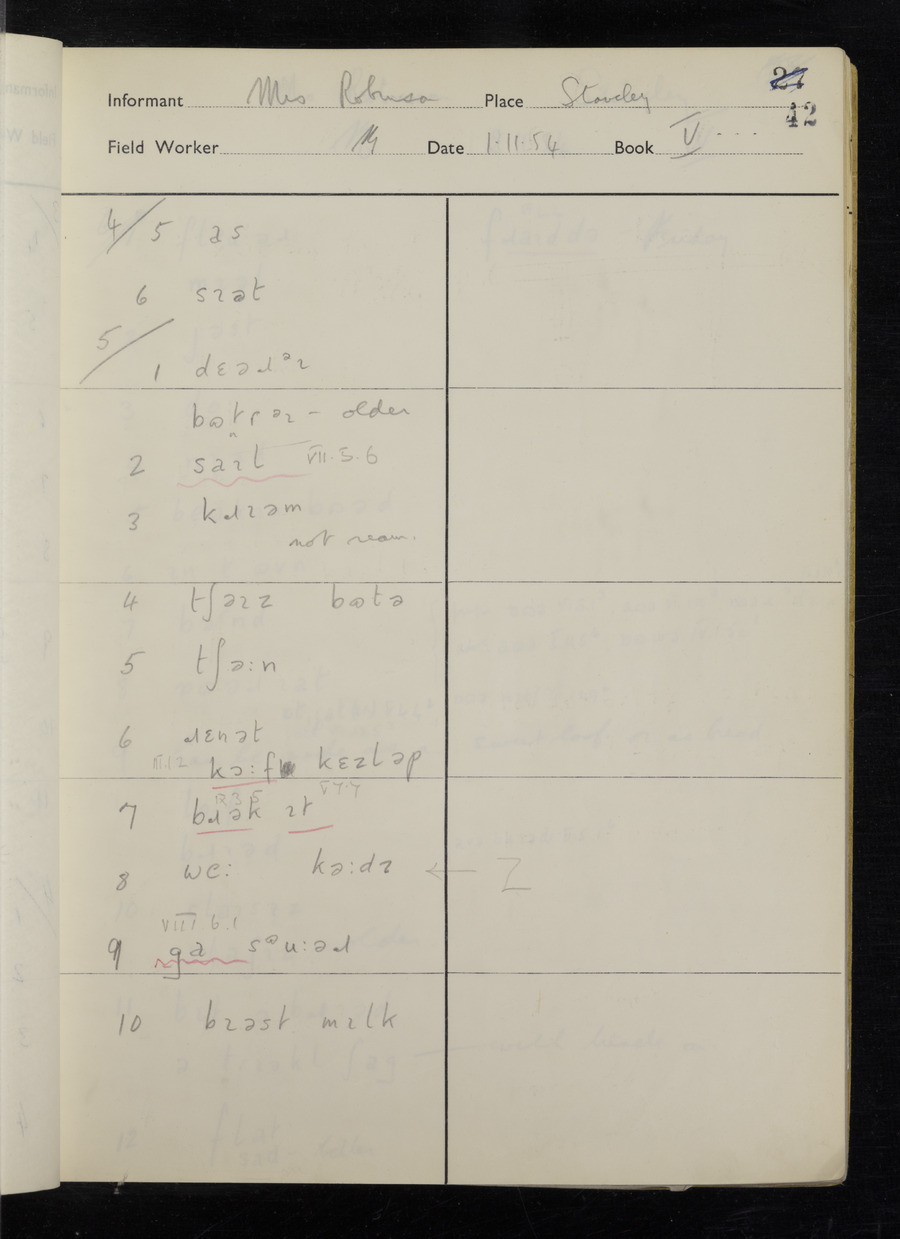 27
Informant Mrs Robinson Place Staveley
42
Field Worker Date 1.11.54 Book V
4/5 as
6 sɪət
5/
1 dɛəɹəɪ
older
2 saɪl VII.5.6
3 kɹɪəm
not ream.
4 tʃəɪz bɷtə
5 tʃə:n
6 ɹɛnət
III.1.2 kə:f kɛzləp
IX.3.5 V.7.7
7 bɹək ɪt
8 wɛ: kə:dz
VIII 6.1
9 sᵊu:əɹ
10 bɪəst mɪlk